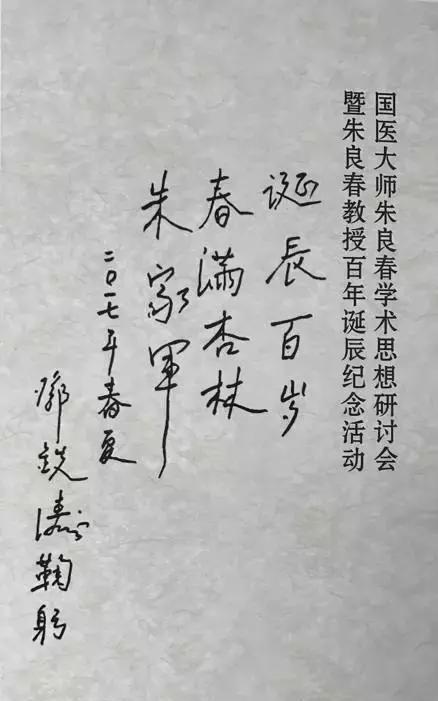 国医大师朱良春学术思想研讨会
暨朱良春教授百年诞辰纪念活动
诞辰百岁
春满杏林
朱家軍
二〇一七年春夏
鄭鋭濤鞠躬